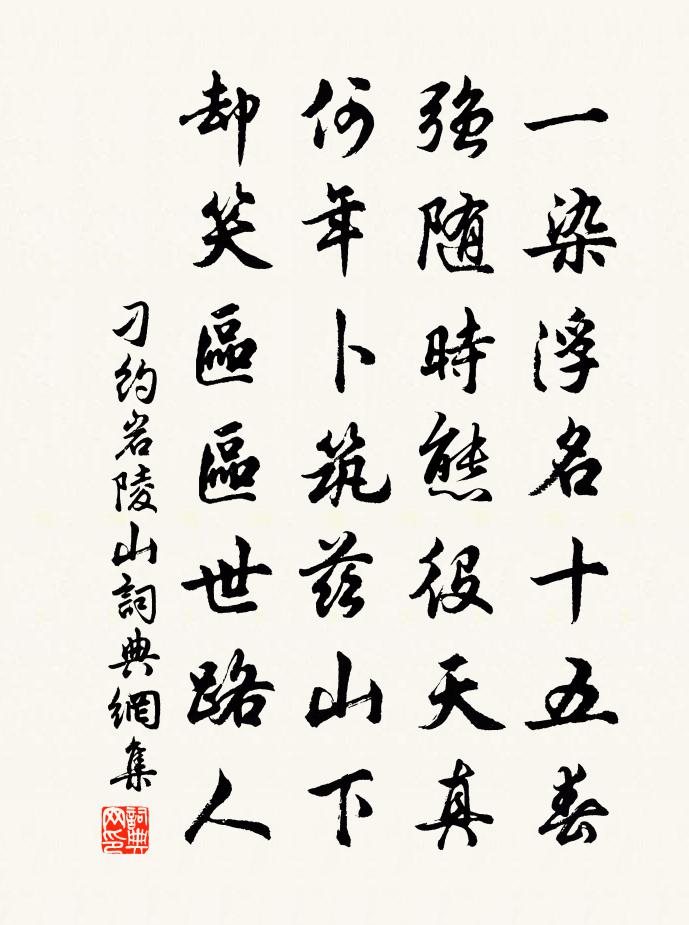 一染浮名十五春
強随時態役天真
何年卜筑茲山下
却笑區區世路人
刁約岩陵山詞典網集
詞典網印